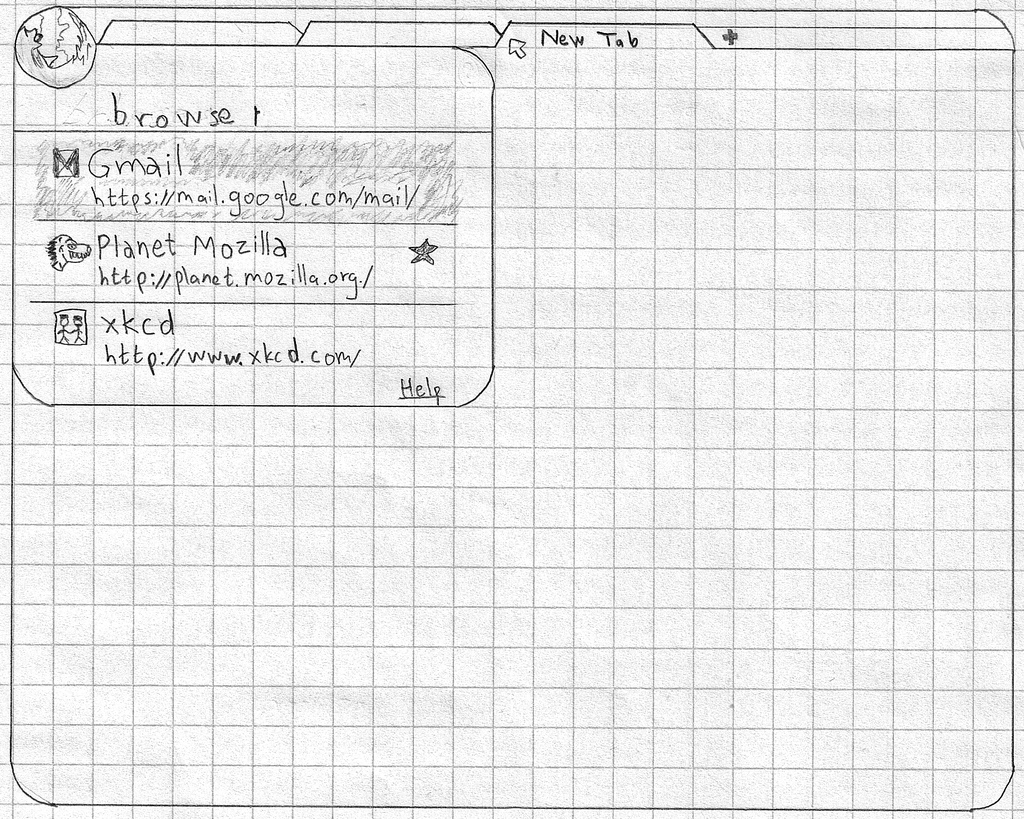 New Tab
browser
Gmail
https://mail.google.com/mail/
Planet Mozilla
http://planet.mozilla.org/
xkcd
http://www.xkcd.com/
Help